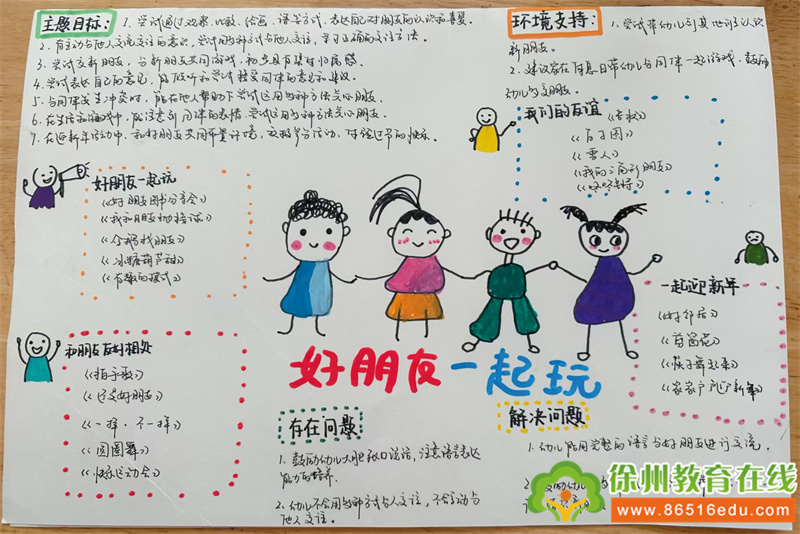 主题目标:
1. 尝试通过观察、比较、绘画、语言等方式,表达自己对朋友的认识和喜爱。
2. 有主动与他人交流交往的意识,尝试用多种方式与他人交往,学习正确的交往方法。
3. 尝试交新朋友,与新朋友共同游戏,初步具有集体归属感。
4. 尝试表达自己的意见,且倾听和尝试接受同伴的意见和建议。
5. 与同伴发生冲突时,能在他人帮助下尝试运用多种方法关心朋友。
6. 在生活和游戏中,能注意到同伴的表情,尝试运用多种方法关心朋友。
7. 在迎新年活动中,和好朋友共同布置环境,积极参与活动,体验过节的快乐。
环境支持:
1. 尝试带幼儿到其他班去认识
新朋友。
2. 建议家长在休息日带幼儿与同伴一起游戏,鼓励
幼儿与交朋友。
好朋友一起玩
《好朋友图书分享会》
《我和朋友》
《今天我找朋友》
《冰糖葫芦甜》
《有趣的模式》
我们的友谊
《百子图》
《雪人》
《我的三角形朋友》
和朋友友好相处
《拍手歌》
《好朋友》
《一样·不一样》
《圆圆舞》
《快乐运动会》
一起迎新年
《好邻居》
《茑笛花》
《筷子舞》
《家家户户迎新年》
好朋友一起玩
存在问题
1. 鼓励幼儿大胆张口说话,注意语言表达
能力的培养。
2. 幼儿不会用多种方式与人交往,不会主动与
他人交往。
解决问题
1. 幼儿能用完整的语言与好朋友进行交流。
徐州教育在线
www.86516edu.com